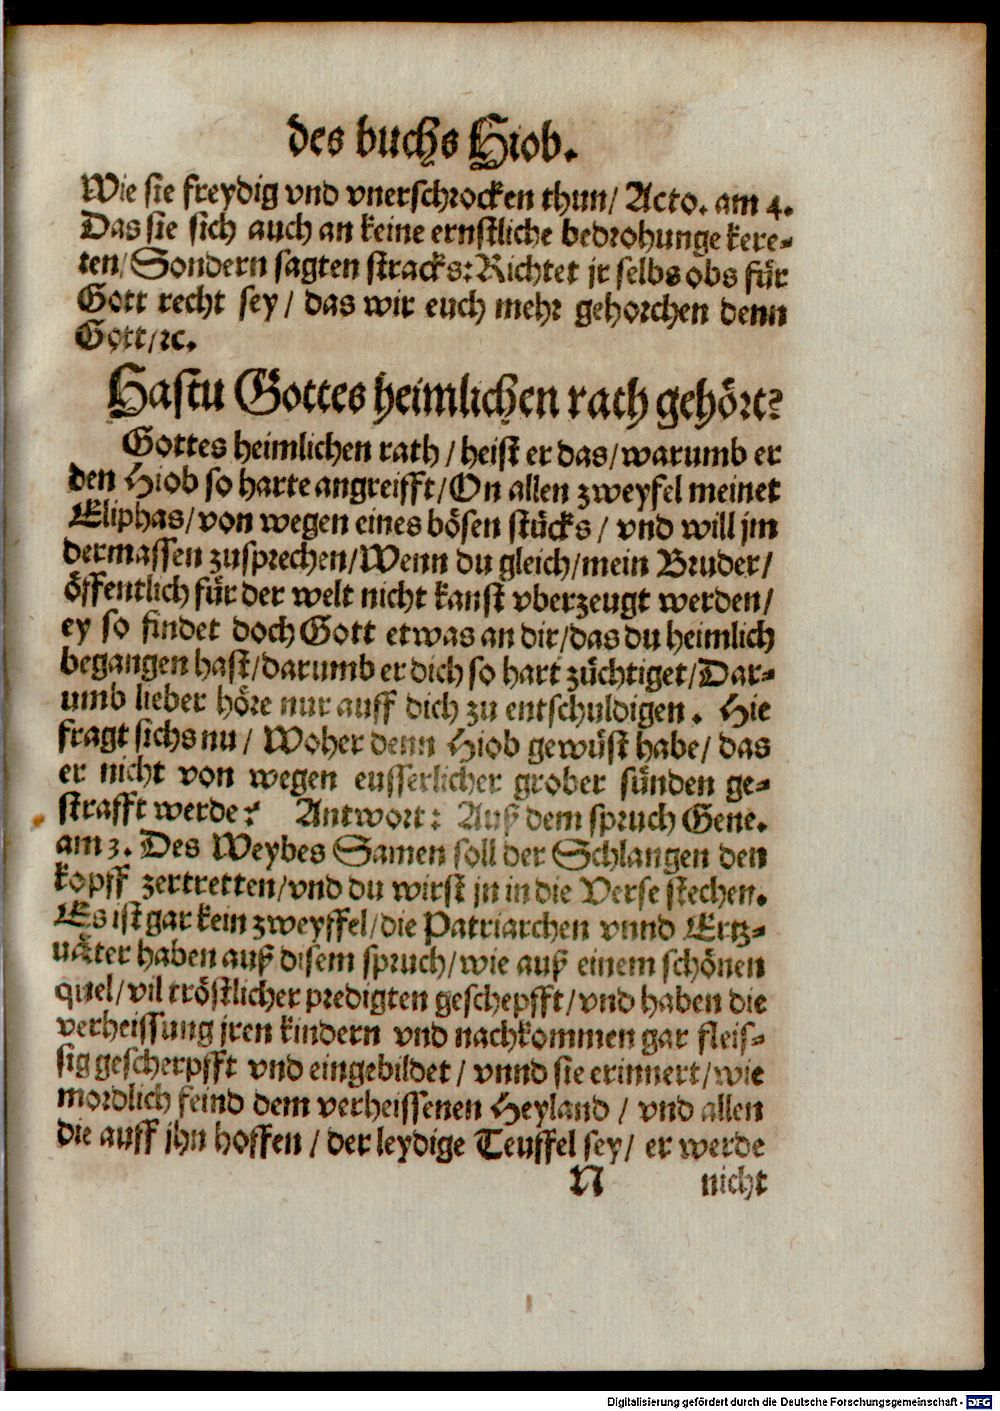 des buchs Hiob.
Wie sie freydig vnd vnerschrocken thun/ Acto. am 4.
Das sie sich auch an keine ernstliche bedrohunge kere-
ten/ Sondern sagten stracks: Richtet jr selbs obs für
Gott recht sey/ das wir euch mehr gehorchen denn
Gott/ ꝛc.
Hastu Gottes heimlichen rath gehört?
Gottes heimlichen rath/ heist er das/ warumb er
den Hiob so harte angreifft/ On allen zweyfel meinet
Eliphas/ von wegen eines bösen stücks/ vnd will jm
dermassen zusprechen/ Wenn du gleich/ mein Bruder/
öffentlich für der welt nicht kanst vberzeugt werden/
ey so findet doch Gott etwas an dir/ das du heimlich
begangen hast/ darumb er dich so hart züchtiget/ Dar-
umb lieber höre nur auff dich zu entschuldigen. Hie
fragt sichs nu/ Woher denn Hiob gewüst habe/ das
er nicht von wegen eusserlicher grober sünden ge-
strafft werde? Antwort: Auß dem spruch Gene.
am 3. Des Weybes Samen soll der Schlangen den
kopff zertretten/ vnd du wirst jn in die Verse stechen.
Es ist gar kein zweyffel/ die Patriarchen vnnd Ertz-
väter haben auß disem spruch/ wie auß einem schönen
quel/ vil tröstlicher predigten geschepfft/ vnd haben die
verheissung jren kindern vnd nachkommen gar fleis-
sig gescherpfft vnd eingebildet/ vnnd sie erinnert/ wie
mordlich feind dem verheissenen Heyland/ vnd allen
die auff jhn hoffen/ der leydige Teuffel sey/ er werde
N nicht
Digitalisierung gefördert durch die Deutsche Forschungsgemeinschaft - DFG